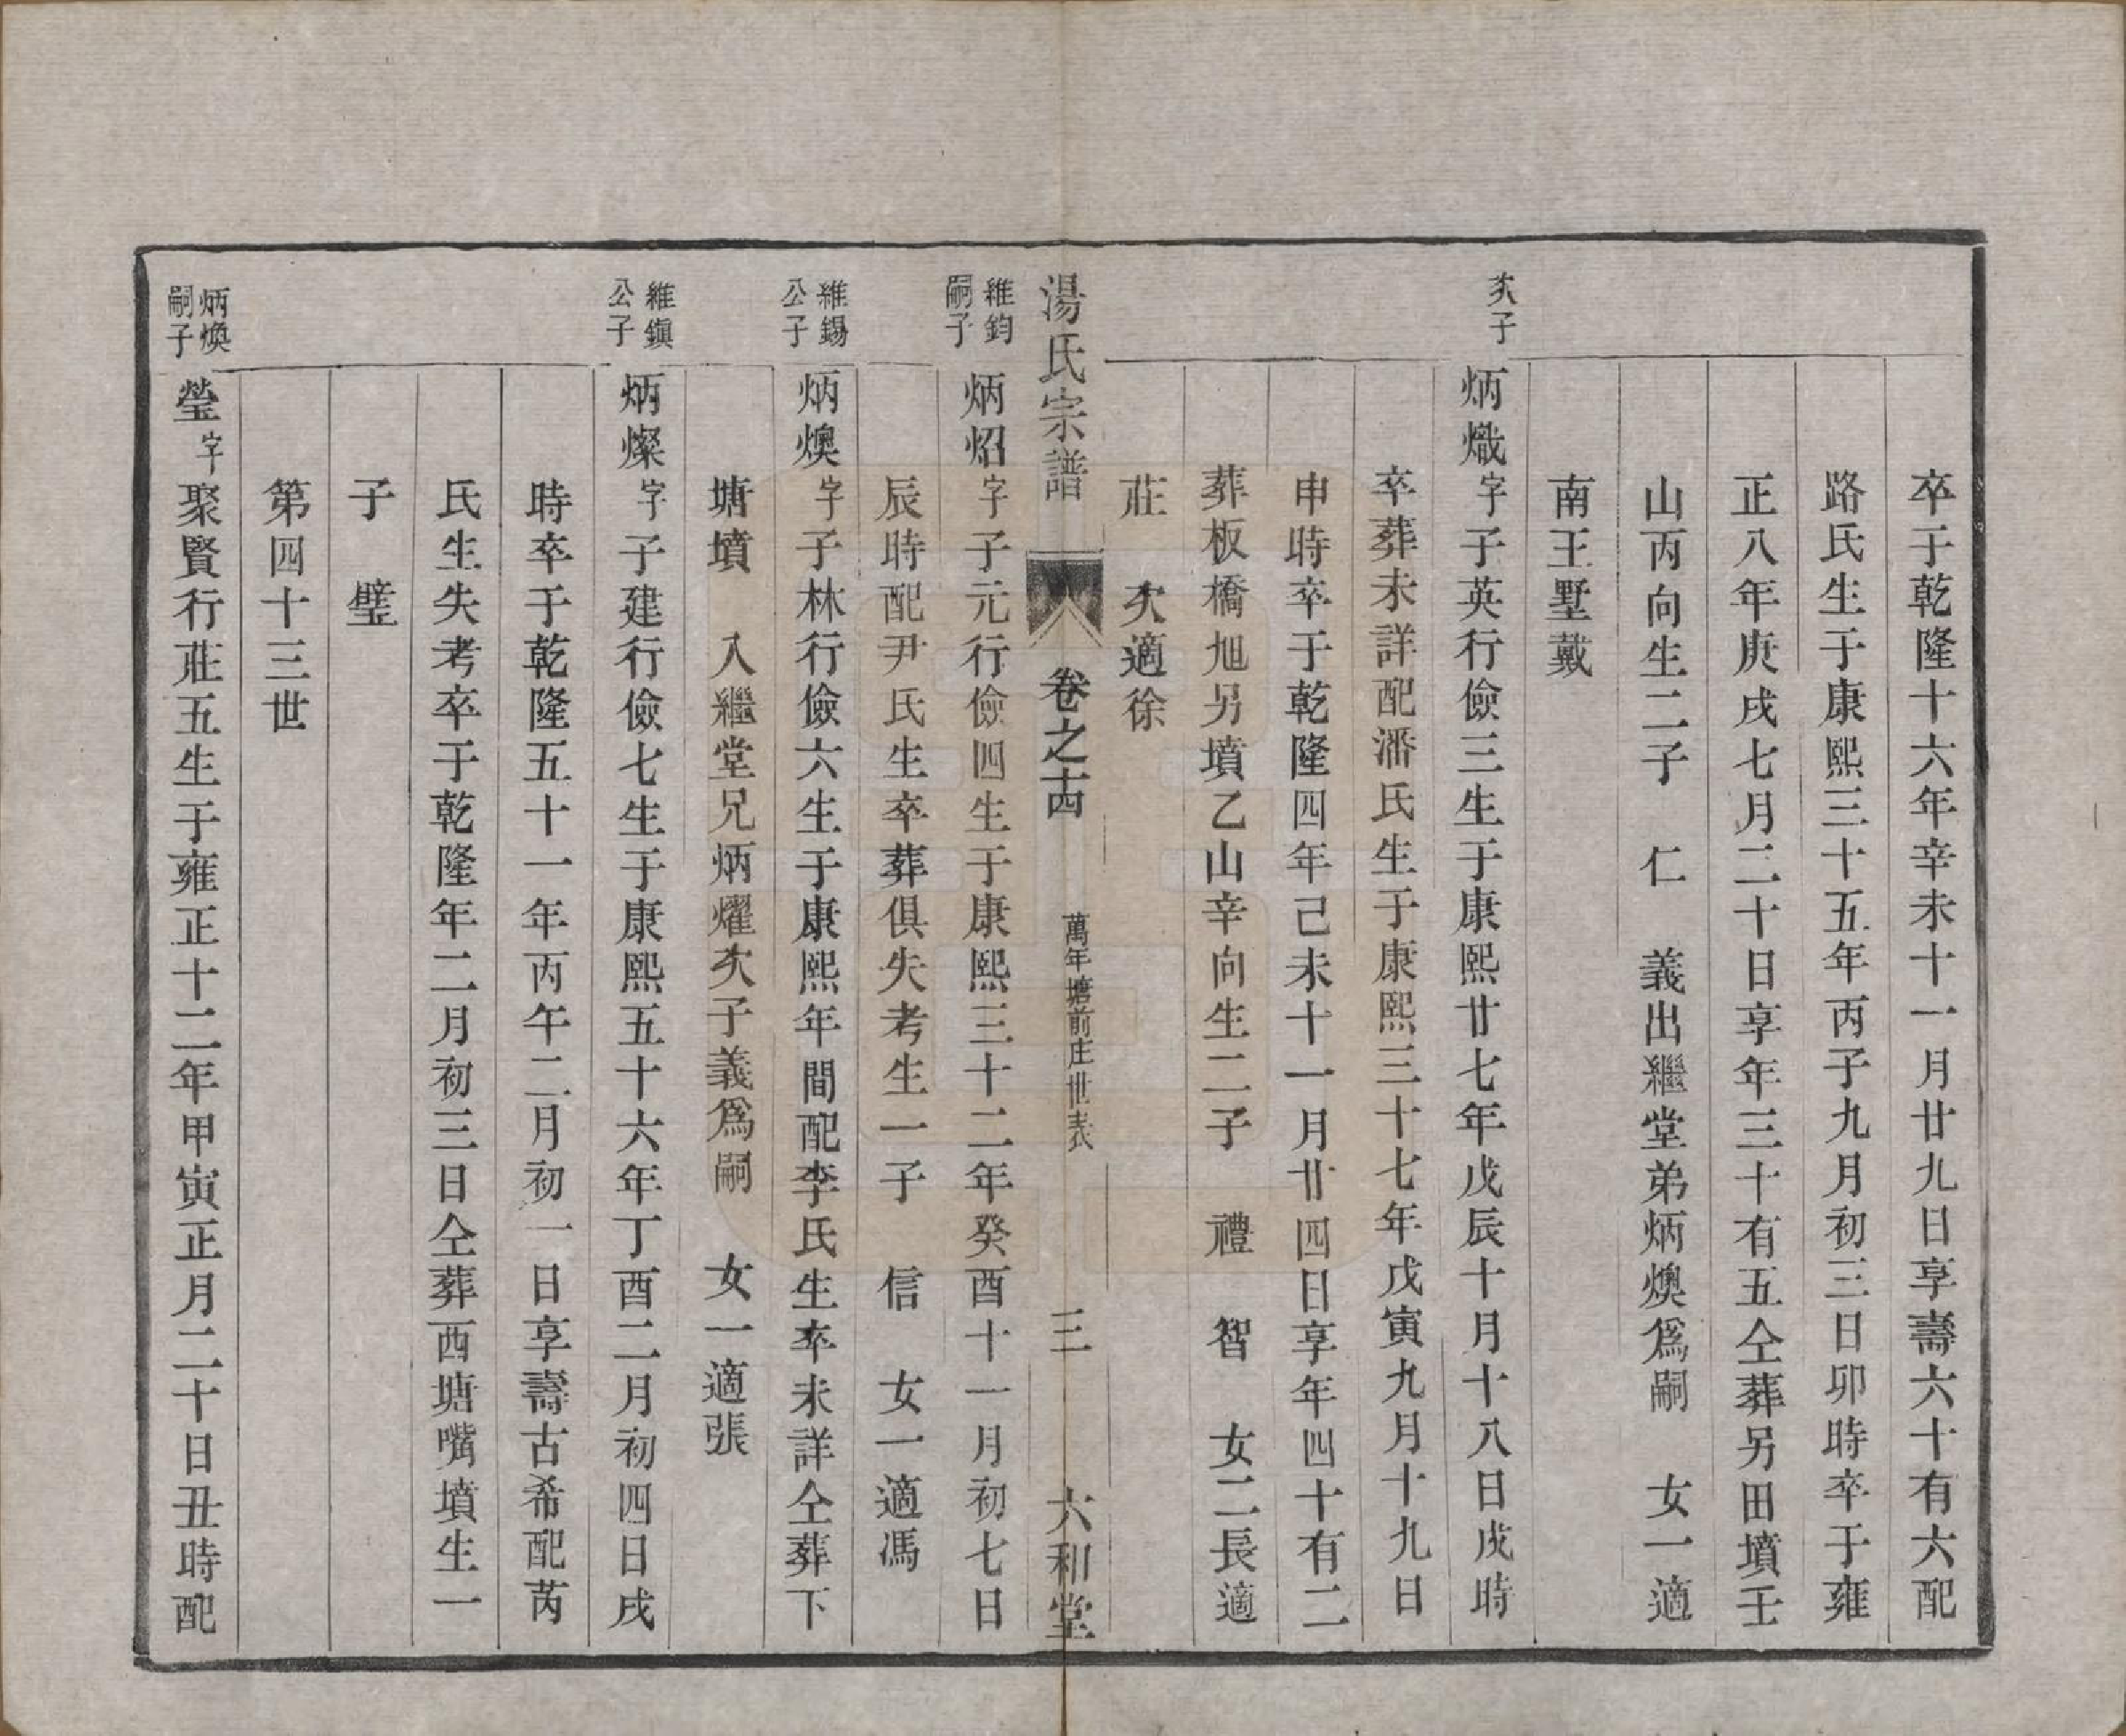 卒于乾隆十六年辛未十一月廿九日享壽六十有六配
路氏生于康熙三十五年丙子九月初三日卯時卒于雍
正八年庚戌七月二十日享年三十有五仝葬另田墳壬
山丙向生二子　仁　義出繼堂弟炳燠爲嗣　女一適
南王墅戴
次子
炳熾字子英行儉三生于康熙廿七年戊辰十月十八日戌時
卒葬未詳配潘氏生于康熙三十七年戊寅九月十九日
申時卒于乾隆四年己未十一月廿四日享年四十有二
葬板橋旭另墳乙山辛向生二子　禮　智　女二長適
莊　次適徐
湯氏宗譜　卷之十四　萬年塘前庄世表　三　六和堂
維鈞
嗣子
炳炤字子元行儉四生于康熙三十二年癸酉十一月初七日
辰時配尹氏生卒葬俱失考生一子　信　女一適馮
維錫
公子
炳燠字子林行儉六生于康熙年間配李氏生卒未詳仝葬下
塘墳　入繼堂兄炳燿次子義爲嗣　女一適張
維鎭
公子
炳燦字子建行儉七生于康熙五十六年丁酉二月初四日戌
時卒于乾隆五十一年丙午二月初一日享壽古希配芮
氏生失考卒于乾隆年二月初三日仝葬西塘嘴墳生一
子　璧
第四十三世
炳煥
嗣子
瑩字聚賢行莊五生于雍正十二年甲寅正月二十日丑時配